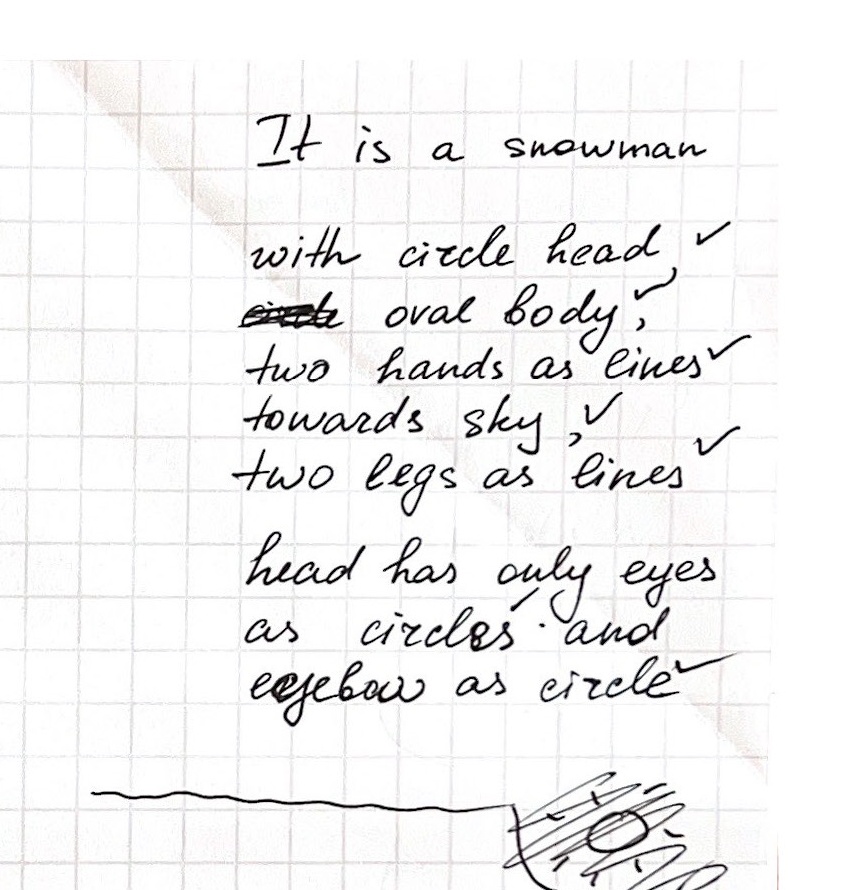 It is a snowman
with circle head, ✓
oval body, ✓
two hands as lines ✓
towards sky, ✓
two legs as lines ✓
head has only eyes
as circles ✓ and
eyebow as circle ✓